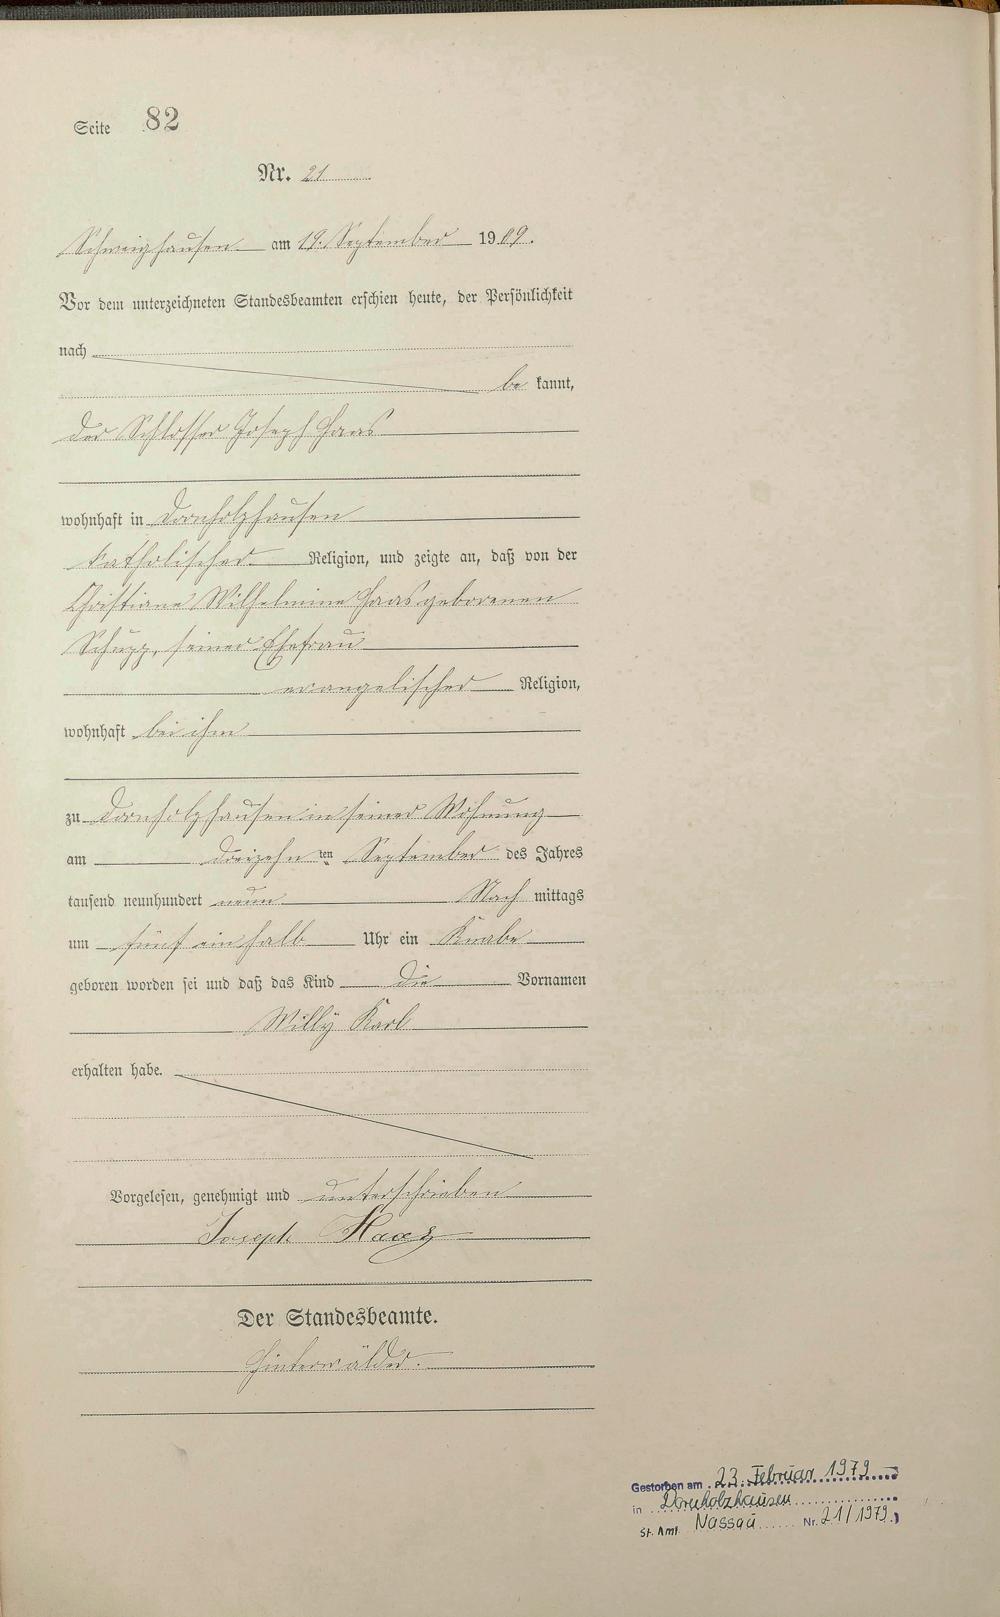 Seite 82
Nr. 21
Schweighausen am 19. September 1909.
Vor dem unterzeichneten Standesbeamten erschien heute, der Persönlichkeit
nach
be kannt,
der Schlosser Joseph Haas
wohnhaft in Dornholzhausen
katholischer Religion, und zeigte an, daß von der
Christiane Wilhelmine Haas geborenen
Schupp, seiner Ehefrau
evangelischer Religion,
wohnhaft bei ihm
zu Dornholzhausen in seiner Wohnung
am dreizehn ten September des Jahres
tausend neunhundert neun Nach mittags
um fünf ein halb Uhr ein Knabe
geboren worden sei und daß das Kind die Vornamen
Willy Karl
erhalten habe.
Vorgelesen, genehmigt und unterschrieben
Joseph Haas
Der Standesbeamte.
Hinterwälder.
Gestorben am 23. Februar 1979
in Dornholzhausen
St. Amt Nassau Nr. 21/1979